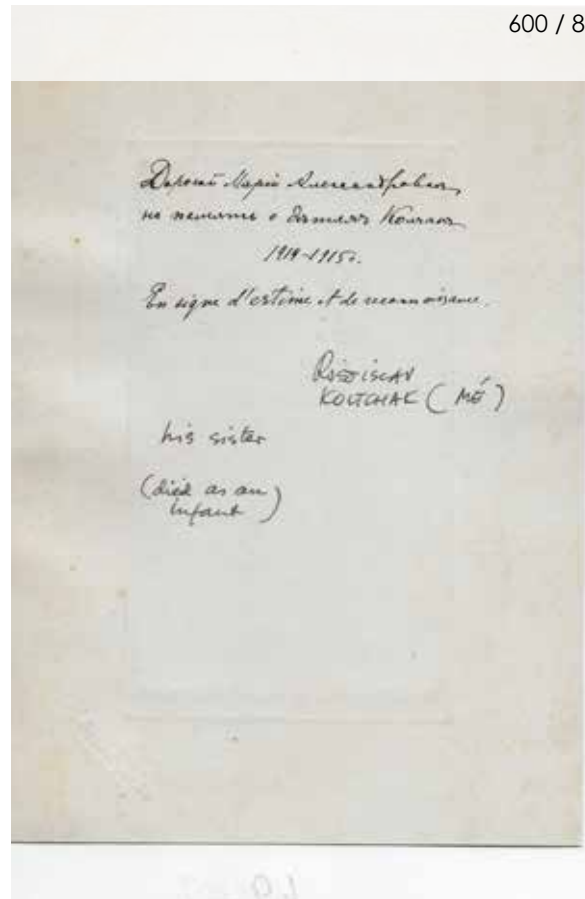 600 / 8
Дорогой Марiи Александровне
на память о детяхъ Колчака
1914-1915г.
En signe d'estime et de reconnaissance.
ROSTISLAV
KOLTCHAK (MÉ)
his sister
(died as an
infant)